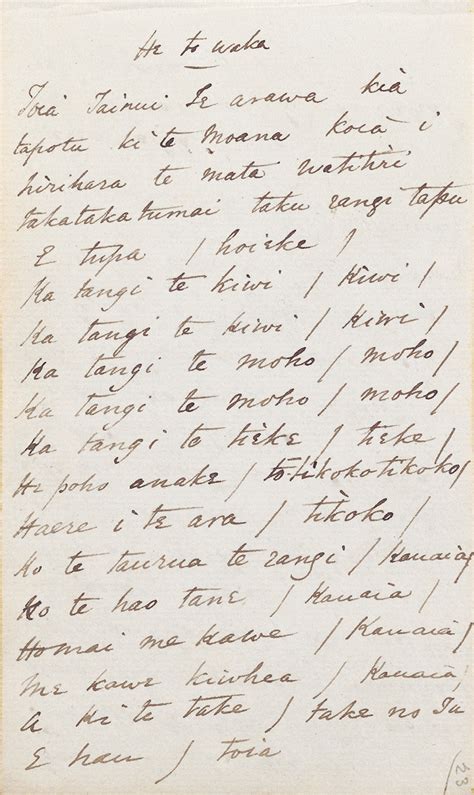 He to waka
Toia Tainui Te arawa kia
tapotu ki te Moana koia i
hirihara te mata watitiri
takatakatumai taku rangi tapu
E tupa / hoieke /
Ka tangi te kiwi / kiwi /
Ka tangi te kiwi / kiwi /
Ka tangi te moho / moho /
Ka tangi te moho / moho /
Ka tangi te tieke / tieke /
He poho anake / to tikoko tikoko /
Haere i te ara / tikoko /
Ko te taurua te rangi / Kauaia /
Ko te hao tane / Kauaia /
Homai me kawe / Kauaia /
Me kawe kiwhea / Kauaia /
A ki te take / take no Tu
E hau / toia
23